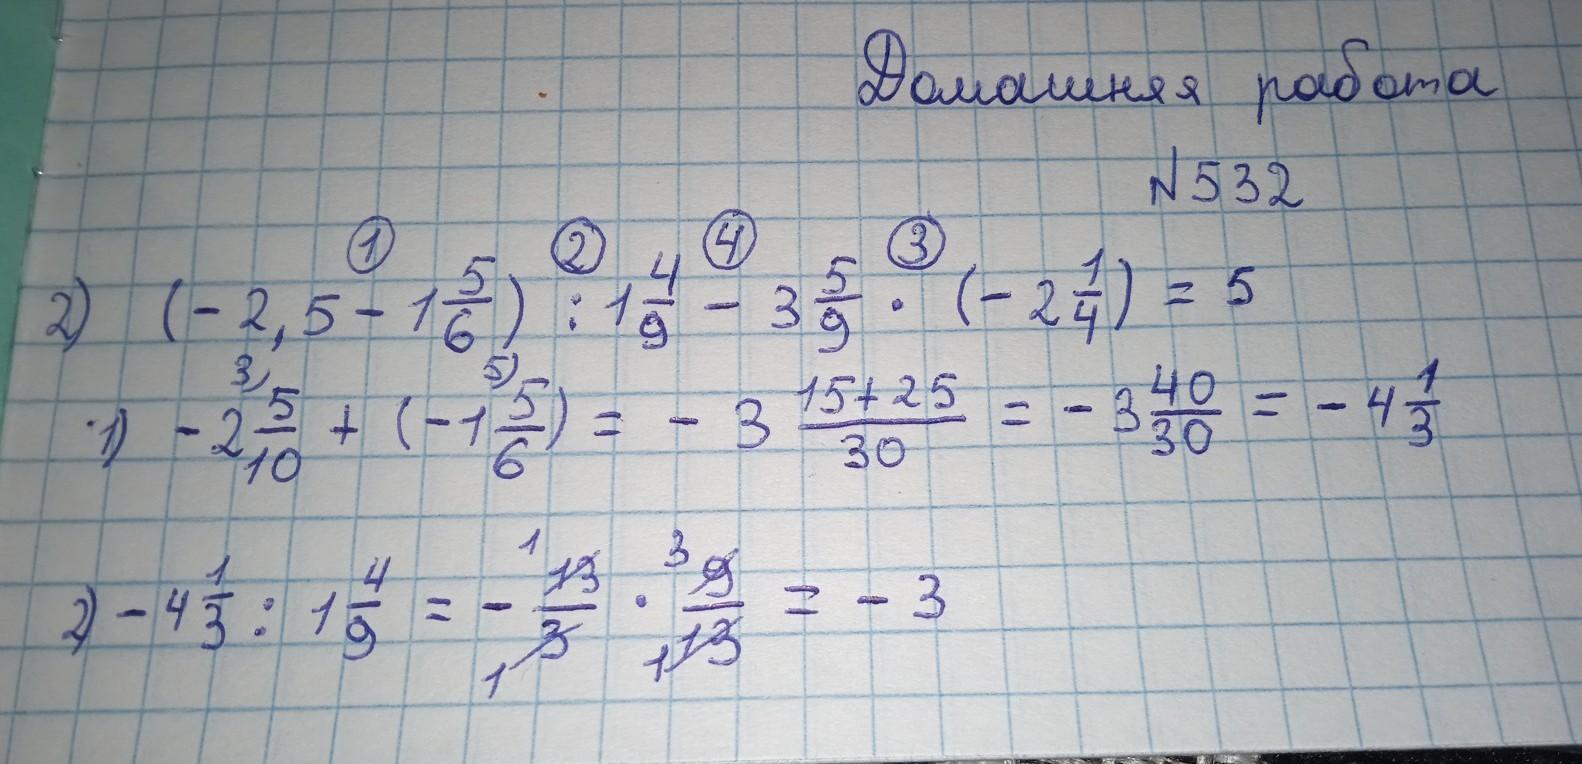 Домашняя работа
№532
① ② ④ ③
2) (-2,5 - 1 5/6) : 1 4/9 - 3 5/9 · (-2 1/4) = 5
3) 5)
1) -2 5/10 + (-1 5/6) = -3 15+25/30 = -3 40/30 = -4 1/3
1 3
2) -4 1/3 : 1 4/9 = - 13/3 · 9/13 = -3
1 1